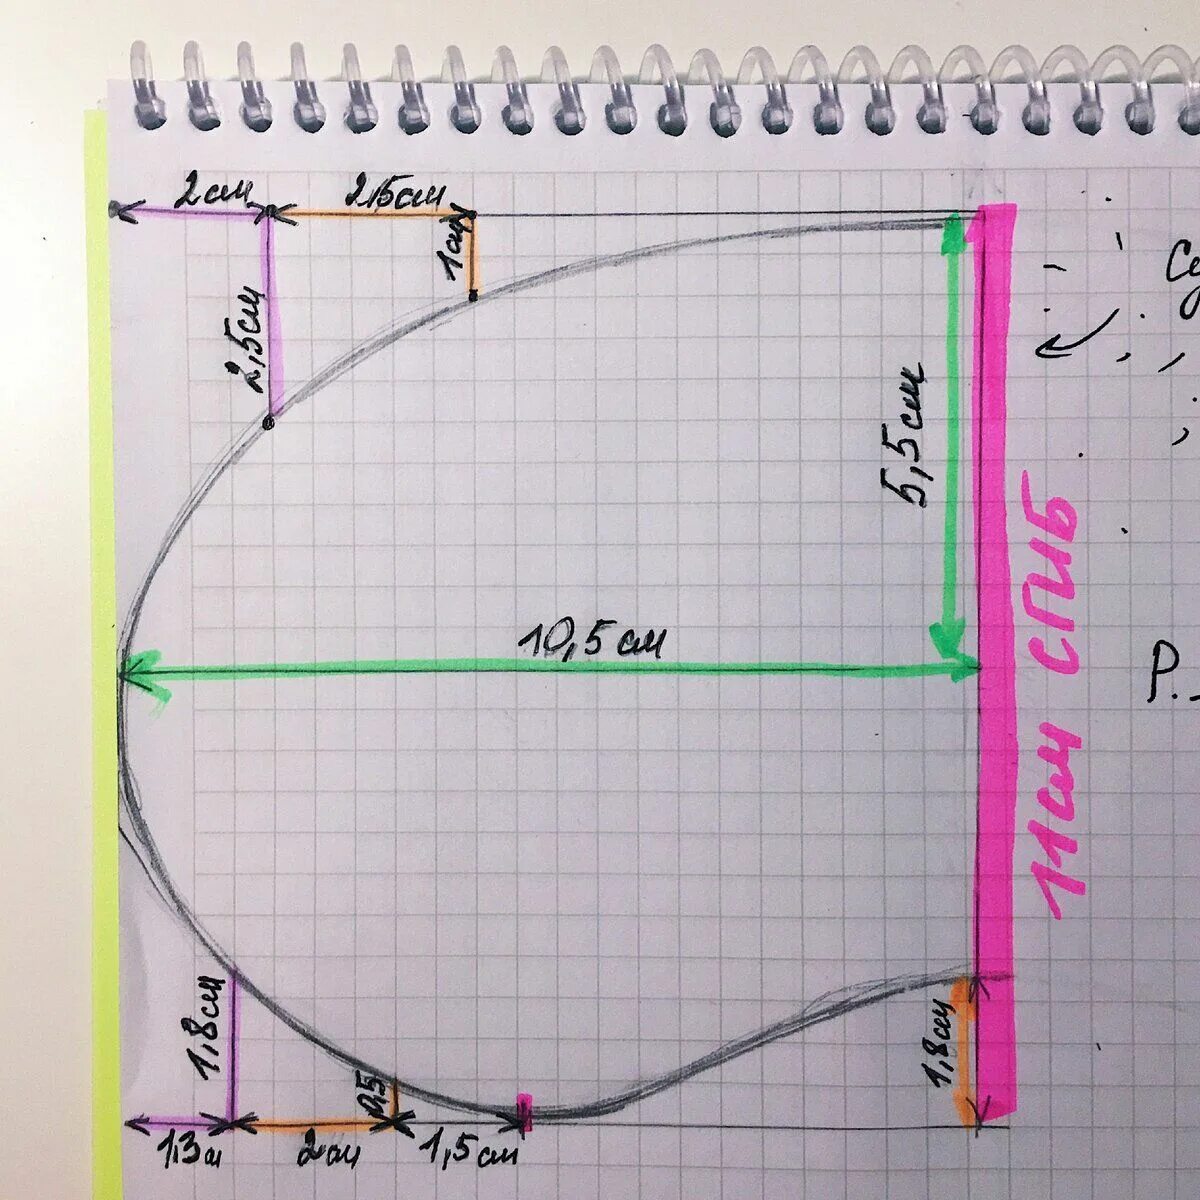 2см
2,5см
1см
2,5см
5,5см
10,5см
11см СГИБ
1,8см
0,5
1,8см
1,3см
2см
1,5см